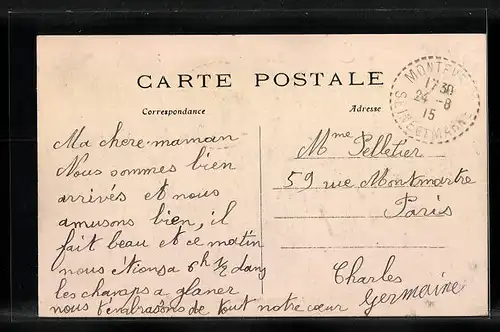 CARTE POSTALE
Correspondance
Adresse
17 30
24 - 8
15
SEINE-ET-MARNE
Ma chere maman
Nous sommes bien
arrivés et nous
amusons bien, il
fait beau et ce matin
nous étions a 6h 1/2 dans
les champs a glaner
nous t'embrasons de tout notre cœur
Mme Pelletier
59 rue Montmartre
Paris
Charles
Germaine